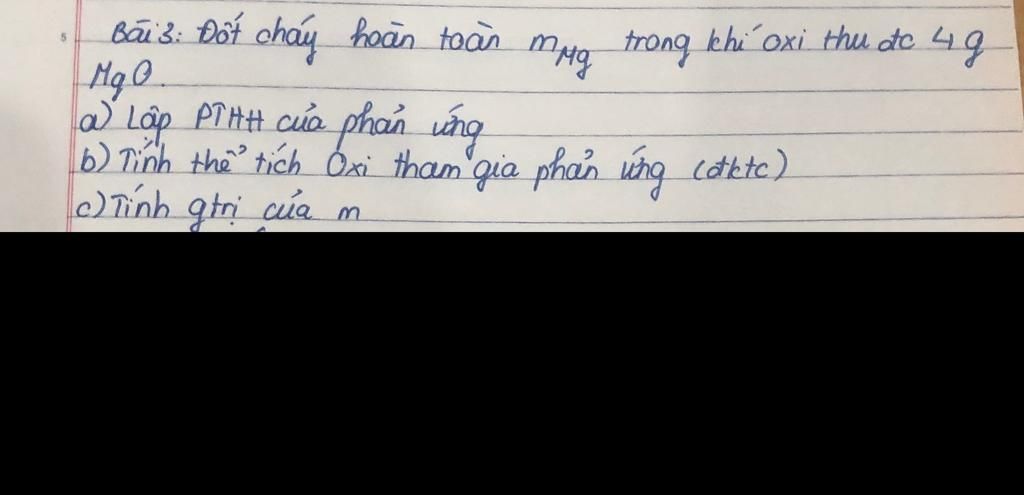 Bài 3: Đốt cháy hoàn toàn mMg trong khí oxi thu đc 4g
MgO.
a) Lập PTHH của phản ứng
b) Tính thể tích Oxi tham gia phản ứng (đktc)
c) Tính gtrị của m